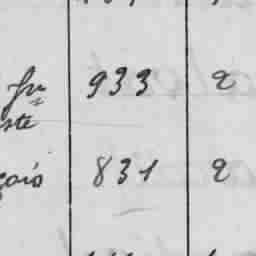 933 2
ste
çois 831 2